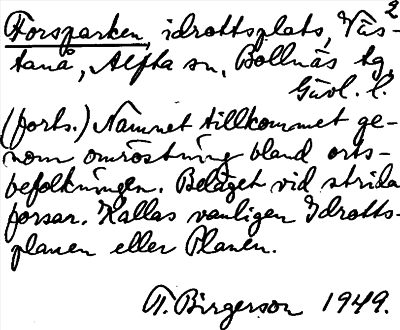 2
Forsparken, idrottsplats, Väs-
tanå, Alfta sn, Bollnäs tg,
Gävl. l.
(forts.) Namnet tillkommet ge-
nom omröstning bland orts-
befolkningen. Beläget vid strida
forsar. Kallas vanligen Idrotts-
planen eller Planen.
T. Birgerson 1949.